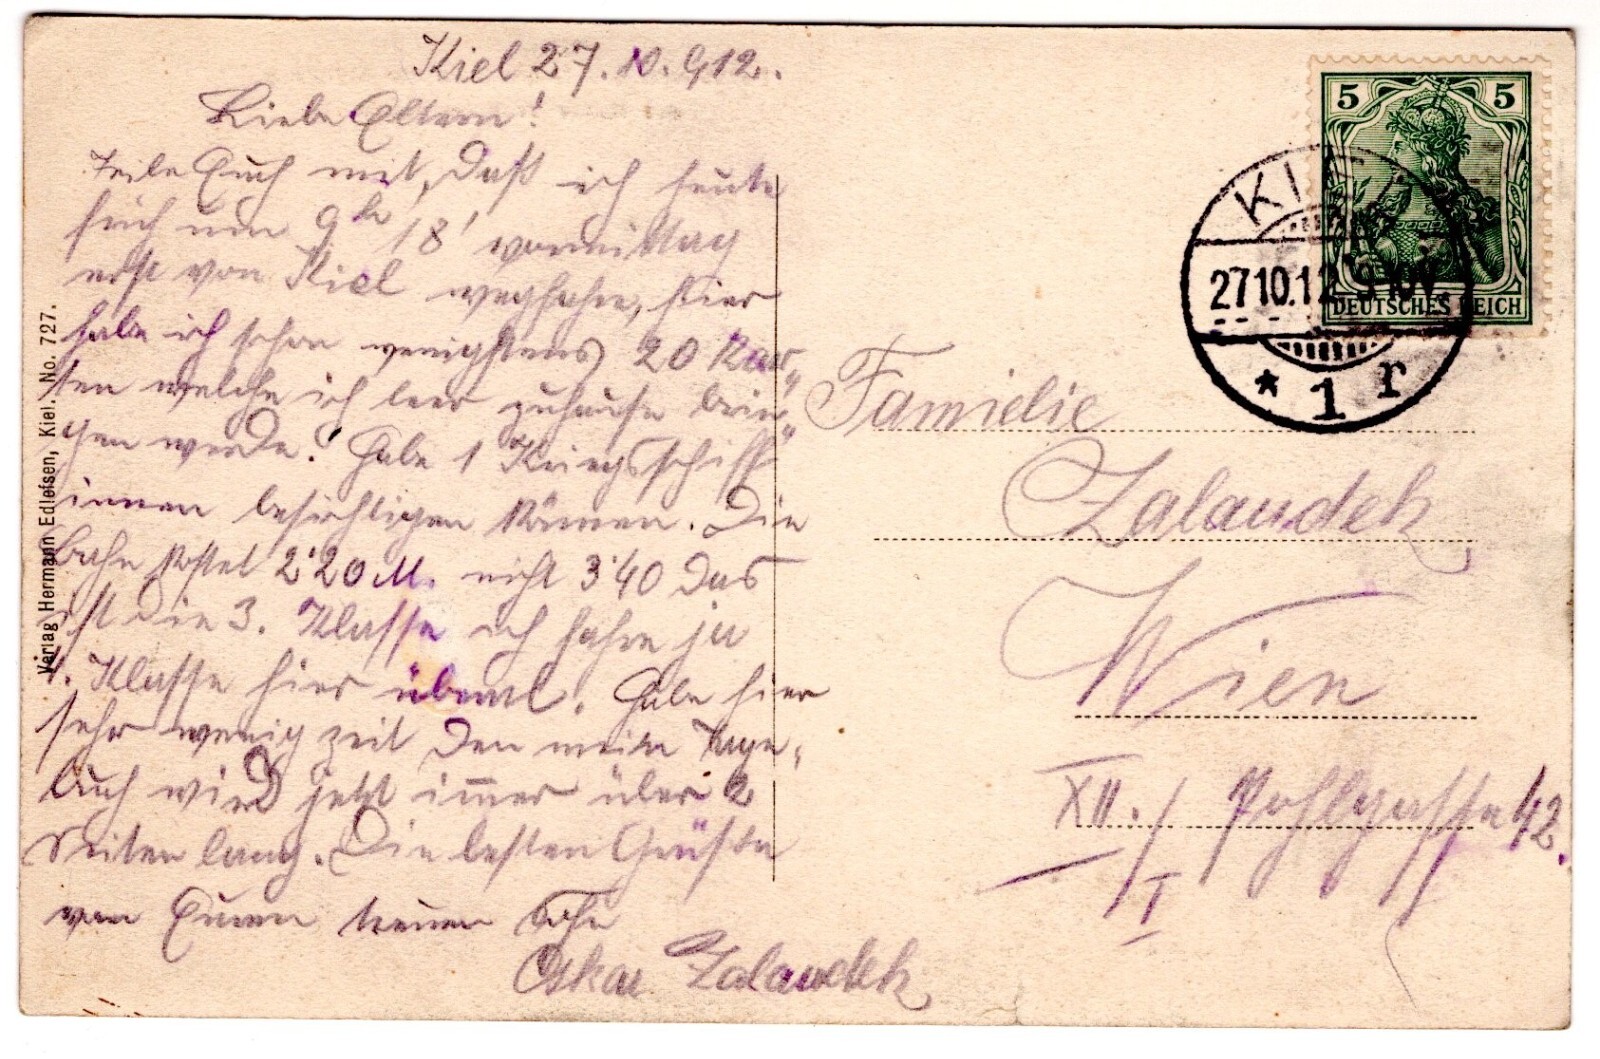 Kiel 27.10.912.
Liebe Eltern!
Teile Euch mit, daß ich heute
früh um 9h 18' vormittag
erst von Kiel wegfahre, hier
habe ich schon wenigstens 20 Kar„
ten welche ich leer zuhause brin„
gen werde! Habe 1 Kriegsschiff
innen besichtigen können. Die
Bahn kostet 2'20 M. nicht 3'40 das
ist die 3. Klasse ich fahre ja
4. Klasse hier überall. Habe hier
sehr wenig zeit den mein Tage„
buch wird jetzt immer über 2
Seiten lang. Die besten Grüße
von Euren treuen Sohn
Oskar Zalaudek
Verlag Hermann Edlefsen, Kiel. No. 727.
5 5
DEUTSCHES REICH
KIEL
27.10.12
* 1 r
Familie
Zalaudek
Wien
XII./I Pohlgasse 42.